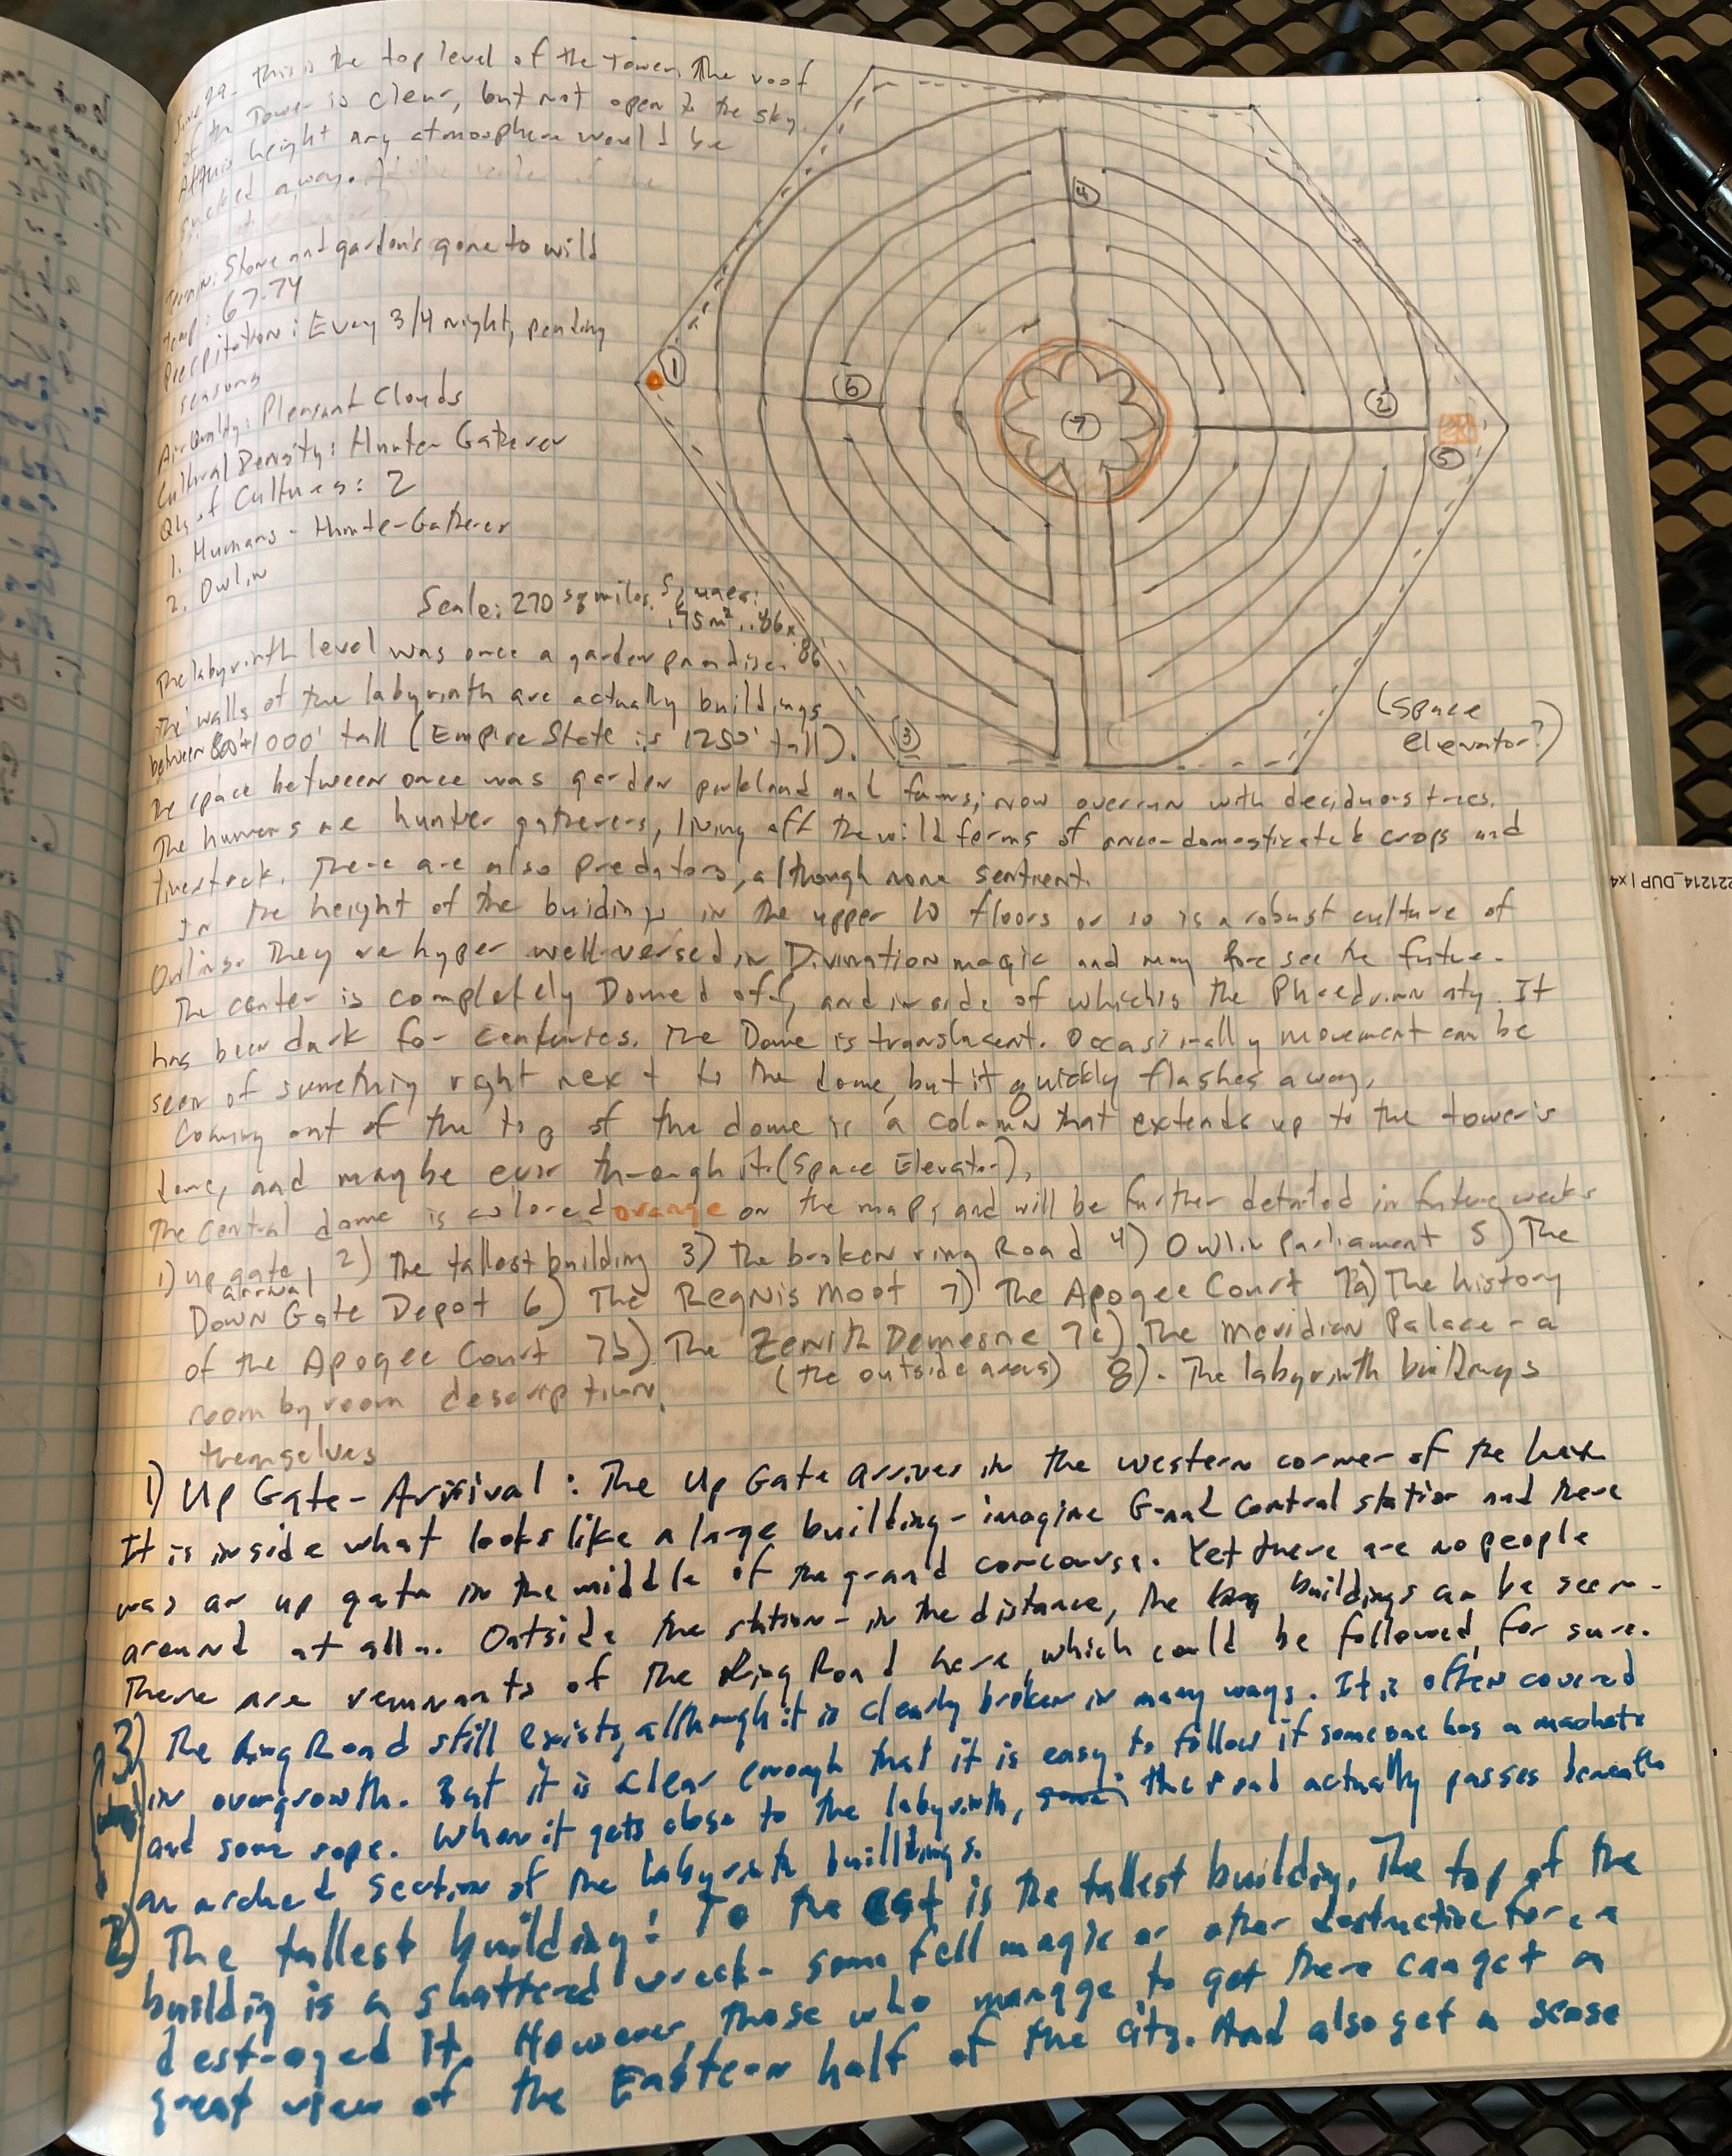 June 29- This is the top level of the Tower. The roof
of the Tower is clear, but not open to the sky.
At this height any atmosphere would be
sucked away.
Terrain: Stone and garden's gone to wild
Temp: 67-74
Precipitation: Every 3/4 night, pending
seasons
Air Quality: Pleasant Clouds
Cultural Density: Hunter Gatherer
Qty of Cultures: 2
1. Humans - Hunte-Gatherer
2. Owlin
Scale: 270 sq miles. Squares:
.75m², .86x
.86
1
2
3
4
5
6
7
(Space
elevator?)
The labyrinth level was once a garden paradise.
The walls of the labyrinth are actually buildings
between 800'+1000' tall (Empire State is 1250' tall).
The space between once was garden parkland and farms; now overrun with deciduous trees.
The humans are hunter gatherers, living off the wild forms of once-domesticated crops and
livestock. There are also predators, although none sentient.
In the height of the buidings in the upper 10 floors or so is a robust culture of
Owlins. They are hyper well-versed in Divination magic and may foresee the future.
The center is completely Domed off, and inside of which is the Phaedrinn city. It
has been dark for centuries. The Dome is translucent. Occasionally movement can be
seen of something right next to the dome, but it quickly flashes away.
Coming out of the top of the dome is a column that extends up to the tower's
dome, and maybe even through it. (Space Elevator).
The central dome is colored orange on the map, and will be further detailed in future weeks
1) up gate arrival 2) The tallest building 3) The broken ring Road 4) Owlin Parliament 5) The
Down Gate Depot 6) The Regnis Moot 7) The Apogee Court 7a) The history
of the Apogee Court 7b) The Zenith Demesne 7c) The Meridian Palace - a
(the outside areas)
room by room description. 8). The labyrinth buildings
themselves
1) Up Gate - Arrival: The Up Gate arrives in the western corner of the hex.
It is inside what looks like a large building - imagine Grand Central station and there
was an up gate in the middle of the grand concourse. Yet there are no people
around at all. Outside the station - in the distance, the buildings can be seen.
There are remnants of the Ring Road here, which could be followed, for sure.
3) The Ring Road still exists, although it is clearly broken in many ways. It is often covered
in overgrowth. But it is clear enough that it is easy to follow if someone has a machete
and some rope. When it gets close to the labyrinth, the road actually passes beneath
an arched section of the labyrinth buillding s.
2) The tallest building: To the East is the tallest building. The top of the
building is a shattered wreck - some fell magic or other destructive force
destroyed it. However, those who manage to get there can get a
great view of the Eastern half of the city. And also get a sense
221214_DUP | x4